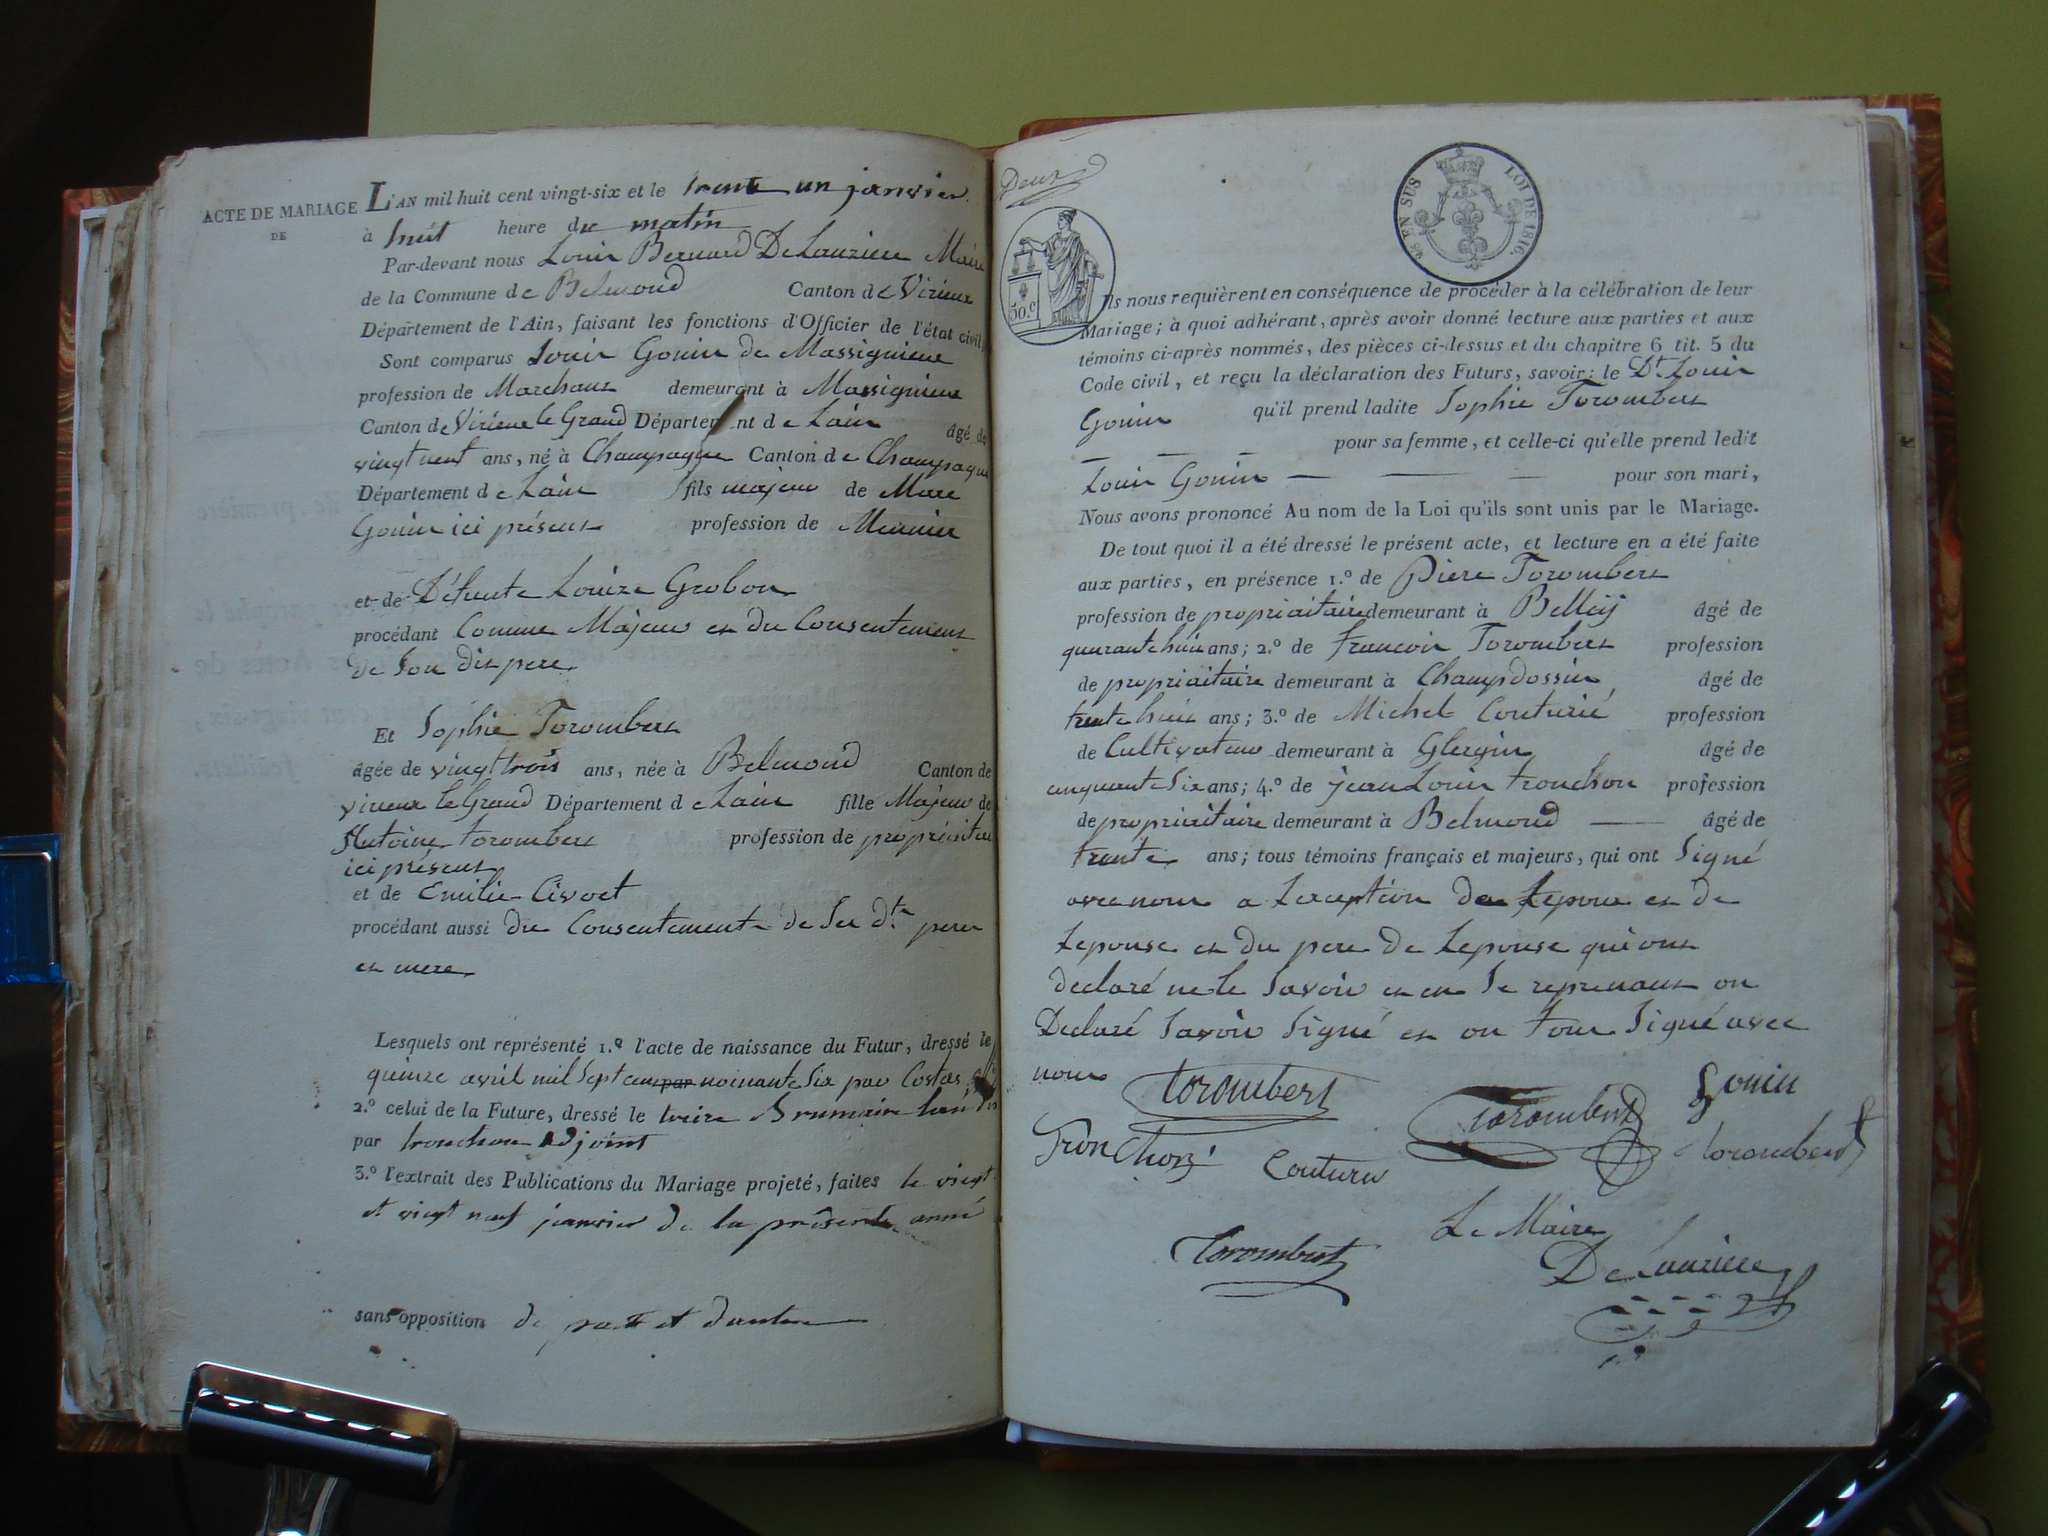 ACTE DE MARIAGE
DE
L'AN mil huit cent vingt-six et le trente un janvier
à huit heure du matin
Par-devant nous Louis Bernard DeLauziere Maire
de la Commune de Belmond Canton de Virieux
Département de l'Ain, faisant les fonctions d'Officier de l'état civil,
Sont comparus Louis Gonin de Massignieux
profession de Marchant demeurant à Massignieux
Canton de Virieux le Grand Département de Lain âgé de
vingt neuf ans, né à Champagne Canton de Champagne
Département de Lain fils majeur de Marc
Gonin ici présent profession de Meunier
et de Défunte Louize Grobon
procédant Comme Majeur et du Consentement
de Son dit pere
Et Sophie Torombert
âgée de vingt trois ans, née à Belmond Canton de
virieux le Grand Département de Lain fille Majeur de
Antoine torombert profession de propriaitaire
ici présent
et de Emilie Civoct
procédant aussi du Consentement de Ses dts peres
et mere
Lesquels ont représenté 1.º l'acte de naissance du Futur, dressé le
quinze avril mil Sept cent par noinante Six par Costas
2.º celui de la Future, dressé le treize Brumaire lan dix
par tronchon adjoint
3.º l'extrait des Publications du Mariage projeté, faites le vingt
et vingt neuf janvier de la présente anné
sans opposition de part et d'autre
Deux
30.c
EN SUS LOI DE 1816.
Ils nous requièrent en conséquence de procéder à la célébration de leur
Mariage; à quoi adhérant, après avoir donné lecture aux parties et aux
témoins ci-après nommés, des pièces ci-dessus et du chapitre 6 tit. 5 du
Code civil, et reçu la déclaration des Futurs, savoir: le Dt Louis
Gonin qu'il prend ladite Sophie Torombert
pour sa femme, et celle-ci qu'elle prend ledit
Louis Gonin pour son mari,
Nous avons prononcé Au nom de la Loi qu'ils sont unis par le Mariage.
De tout quoi il a été dressé le présent acte, et lecture en a été faite
aux parties, en présence 1.º de Piere Torombert
profession de propriaitaire demeurant à Belleÿ âgé de
quarante huit ans; 2.º de Francois Torombert profession
de propriaitaire demeurant à Champdossin âgé de
trente huit ans; 3.º de Michel Couturié profession
de Cultivateur demeurant à Glergin âgé de
cinquante Six ans; 4.º de jean Louis tronchon profession
de propriaitaire demeurant à Belmond âgé de
trente ans; tous témoins français et majeurs, qui ont Signé
avec nous a Lexception de Lepoux et de
Lepouse et du pere de Lepouse qui ont
declaré ne le Savoir et en Se reprenant on
Declaré Savoir Signé et on tous Signé avec
nous torombert Torombert Gonin
Tronchon Couturie torombert
Torombert Le Maire
DeLauziere